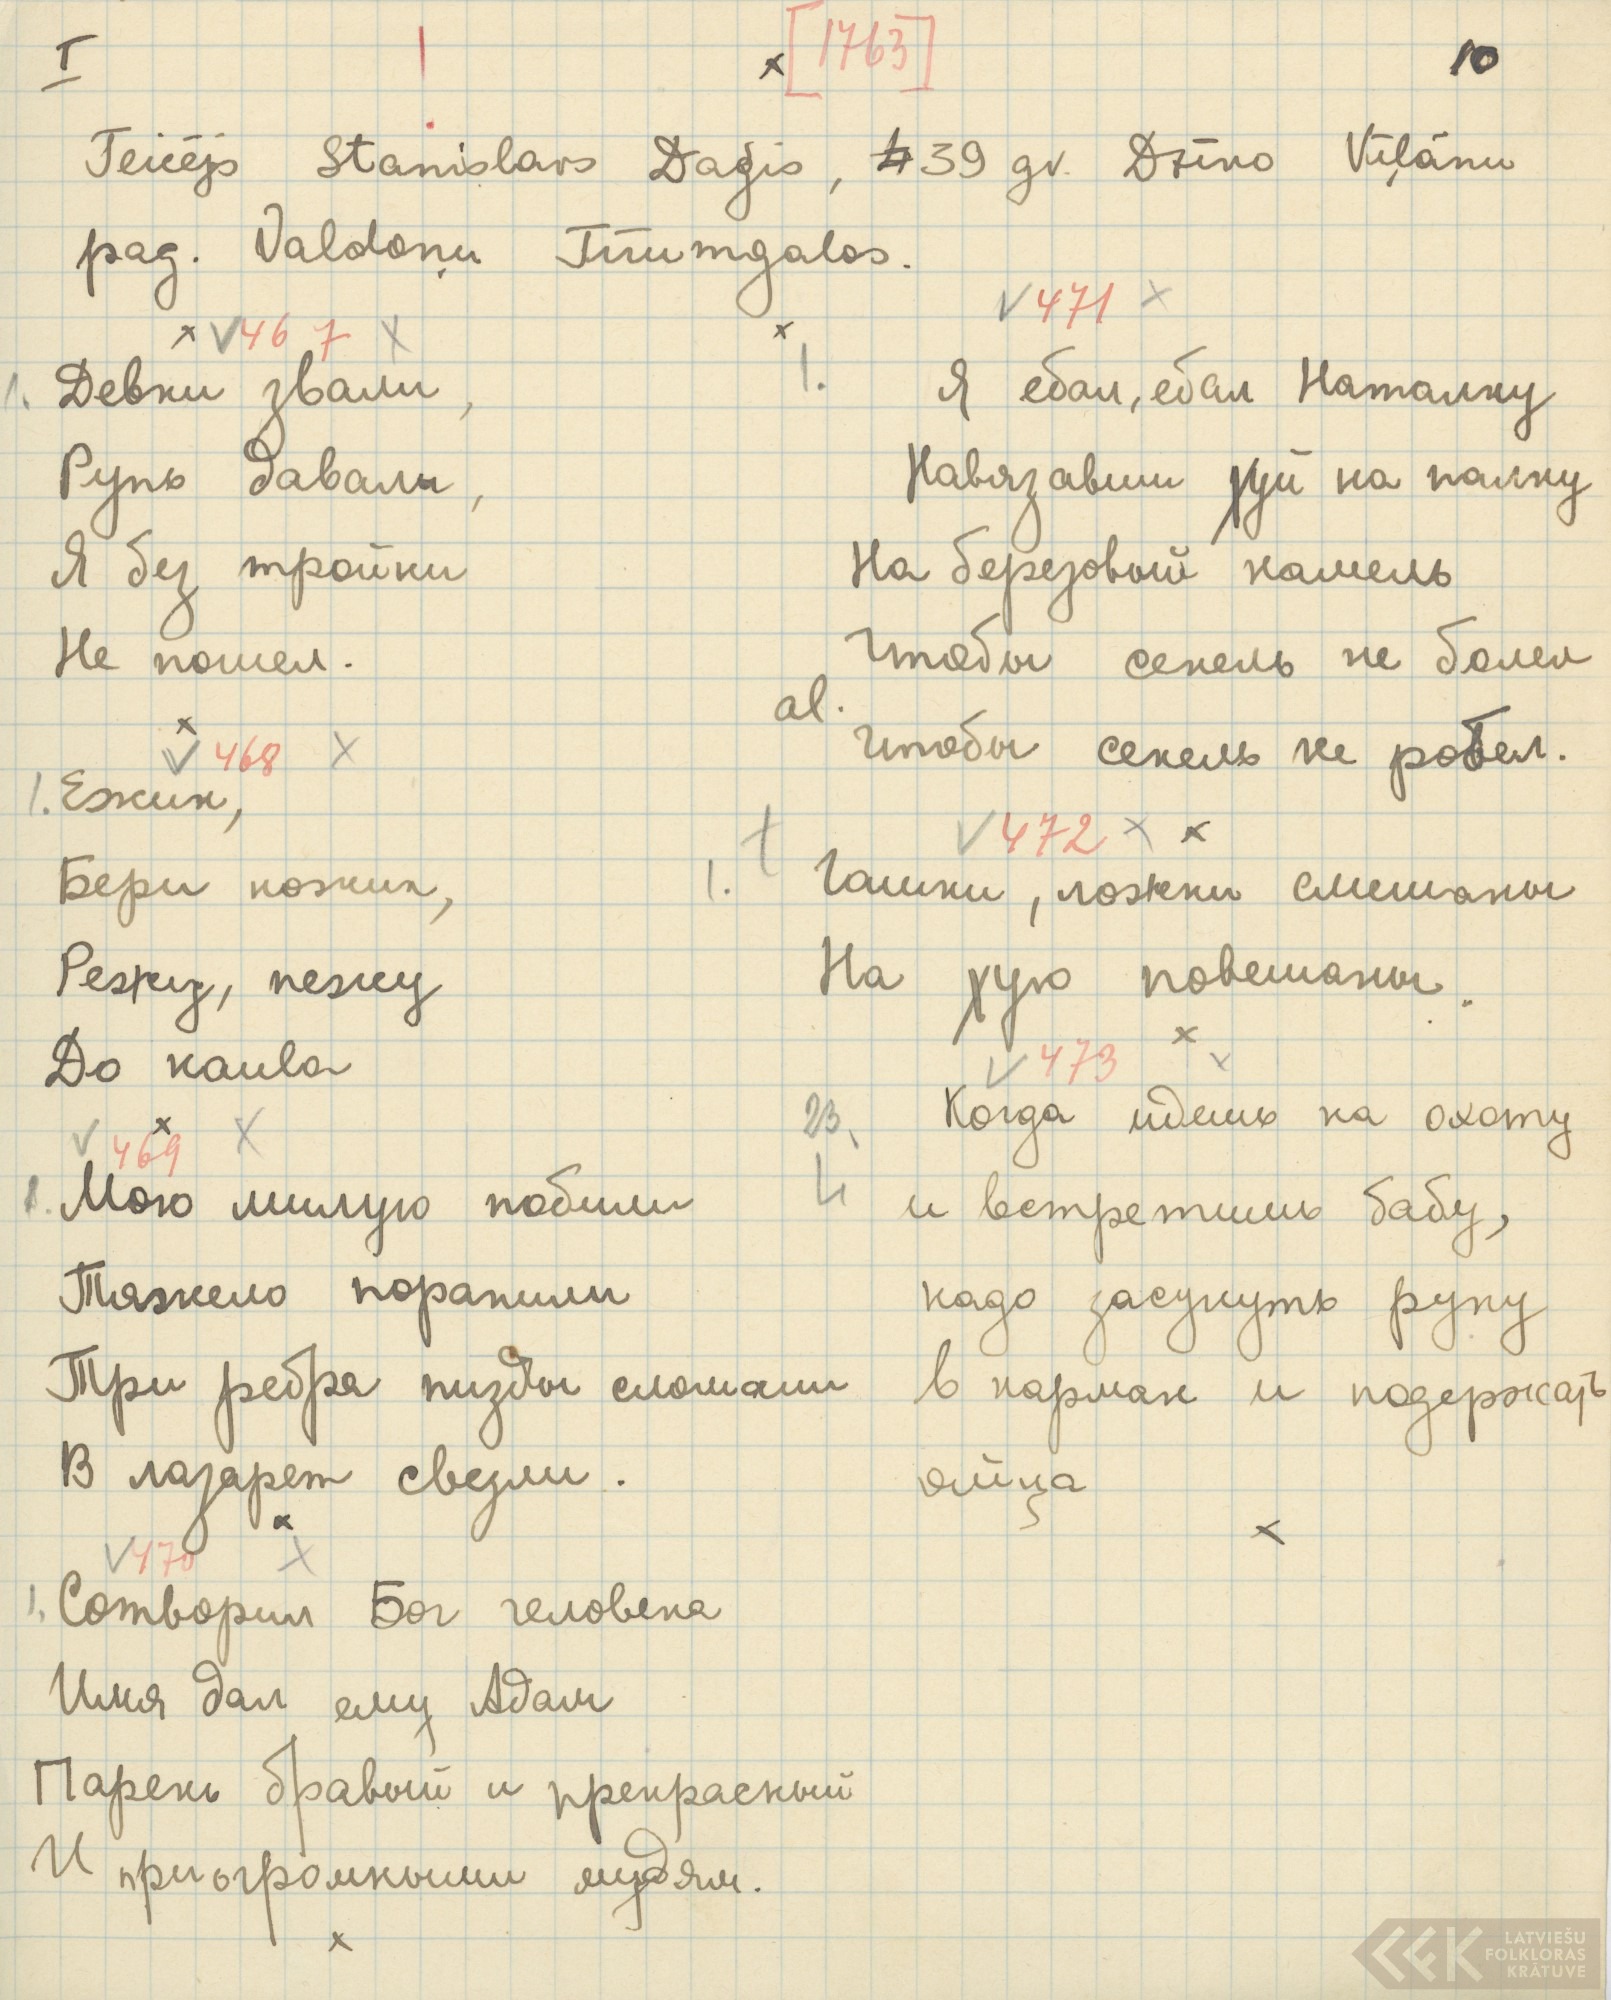 I ! × [1763] 10
Teicējs Stanislavs Daģis, 39 gv. Dzīvo Viļānu
pag. Valdoņu Tīrumgalos.
× √ 467 ×
1. Девки звали,
Рупь давали,
Я без тройки
Не пошел.
×
√ 468 ×
1. Ежик,
Бери ножик,
Режу, пежу
До
√ 469 × ×
1. Мою милую побили
Тяжело поранили
Три ребра пизды сломали
В лазарет свезли.
×
√ 470 ×
1. Сотворил Бог человека
Имя дал ему Адам
Парень бравый и прекрасный
И приогромными мудям.
×
√ 471 ×
×
1. Я ебал, ебал Наталку
Навязавши хуй на палку
На березовый камель
Чтобы секель не болел
al.
Чтобы секель не робел.
√ 472 × ×
1. Чашки, ложки смешаны
На хую повешаны.
×
√ 473 ×
23. Когда идешь на охоту
и встретишь бабу,
надо засунуть руку
в карман и подержать
яйца
×
LATVIEŠU
FOLKLORAS
KRĀTUVE